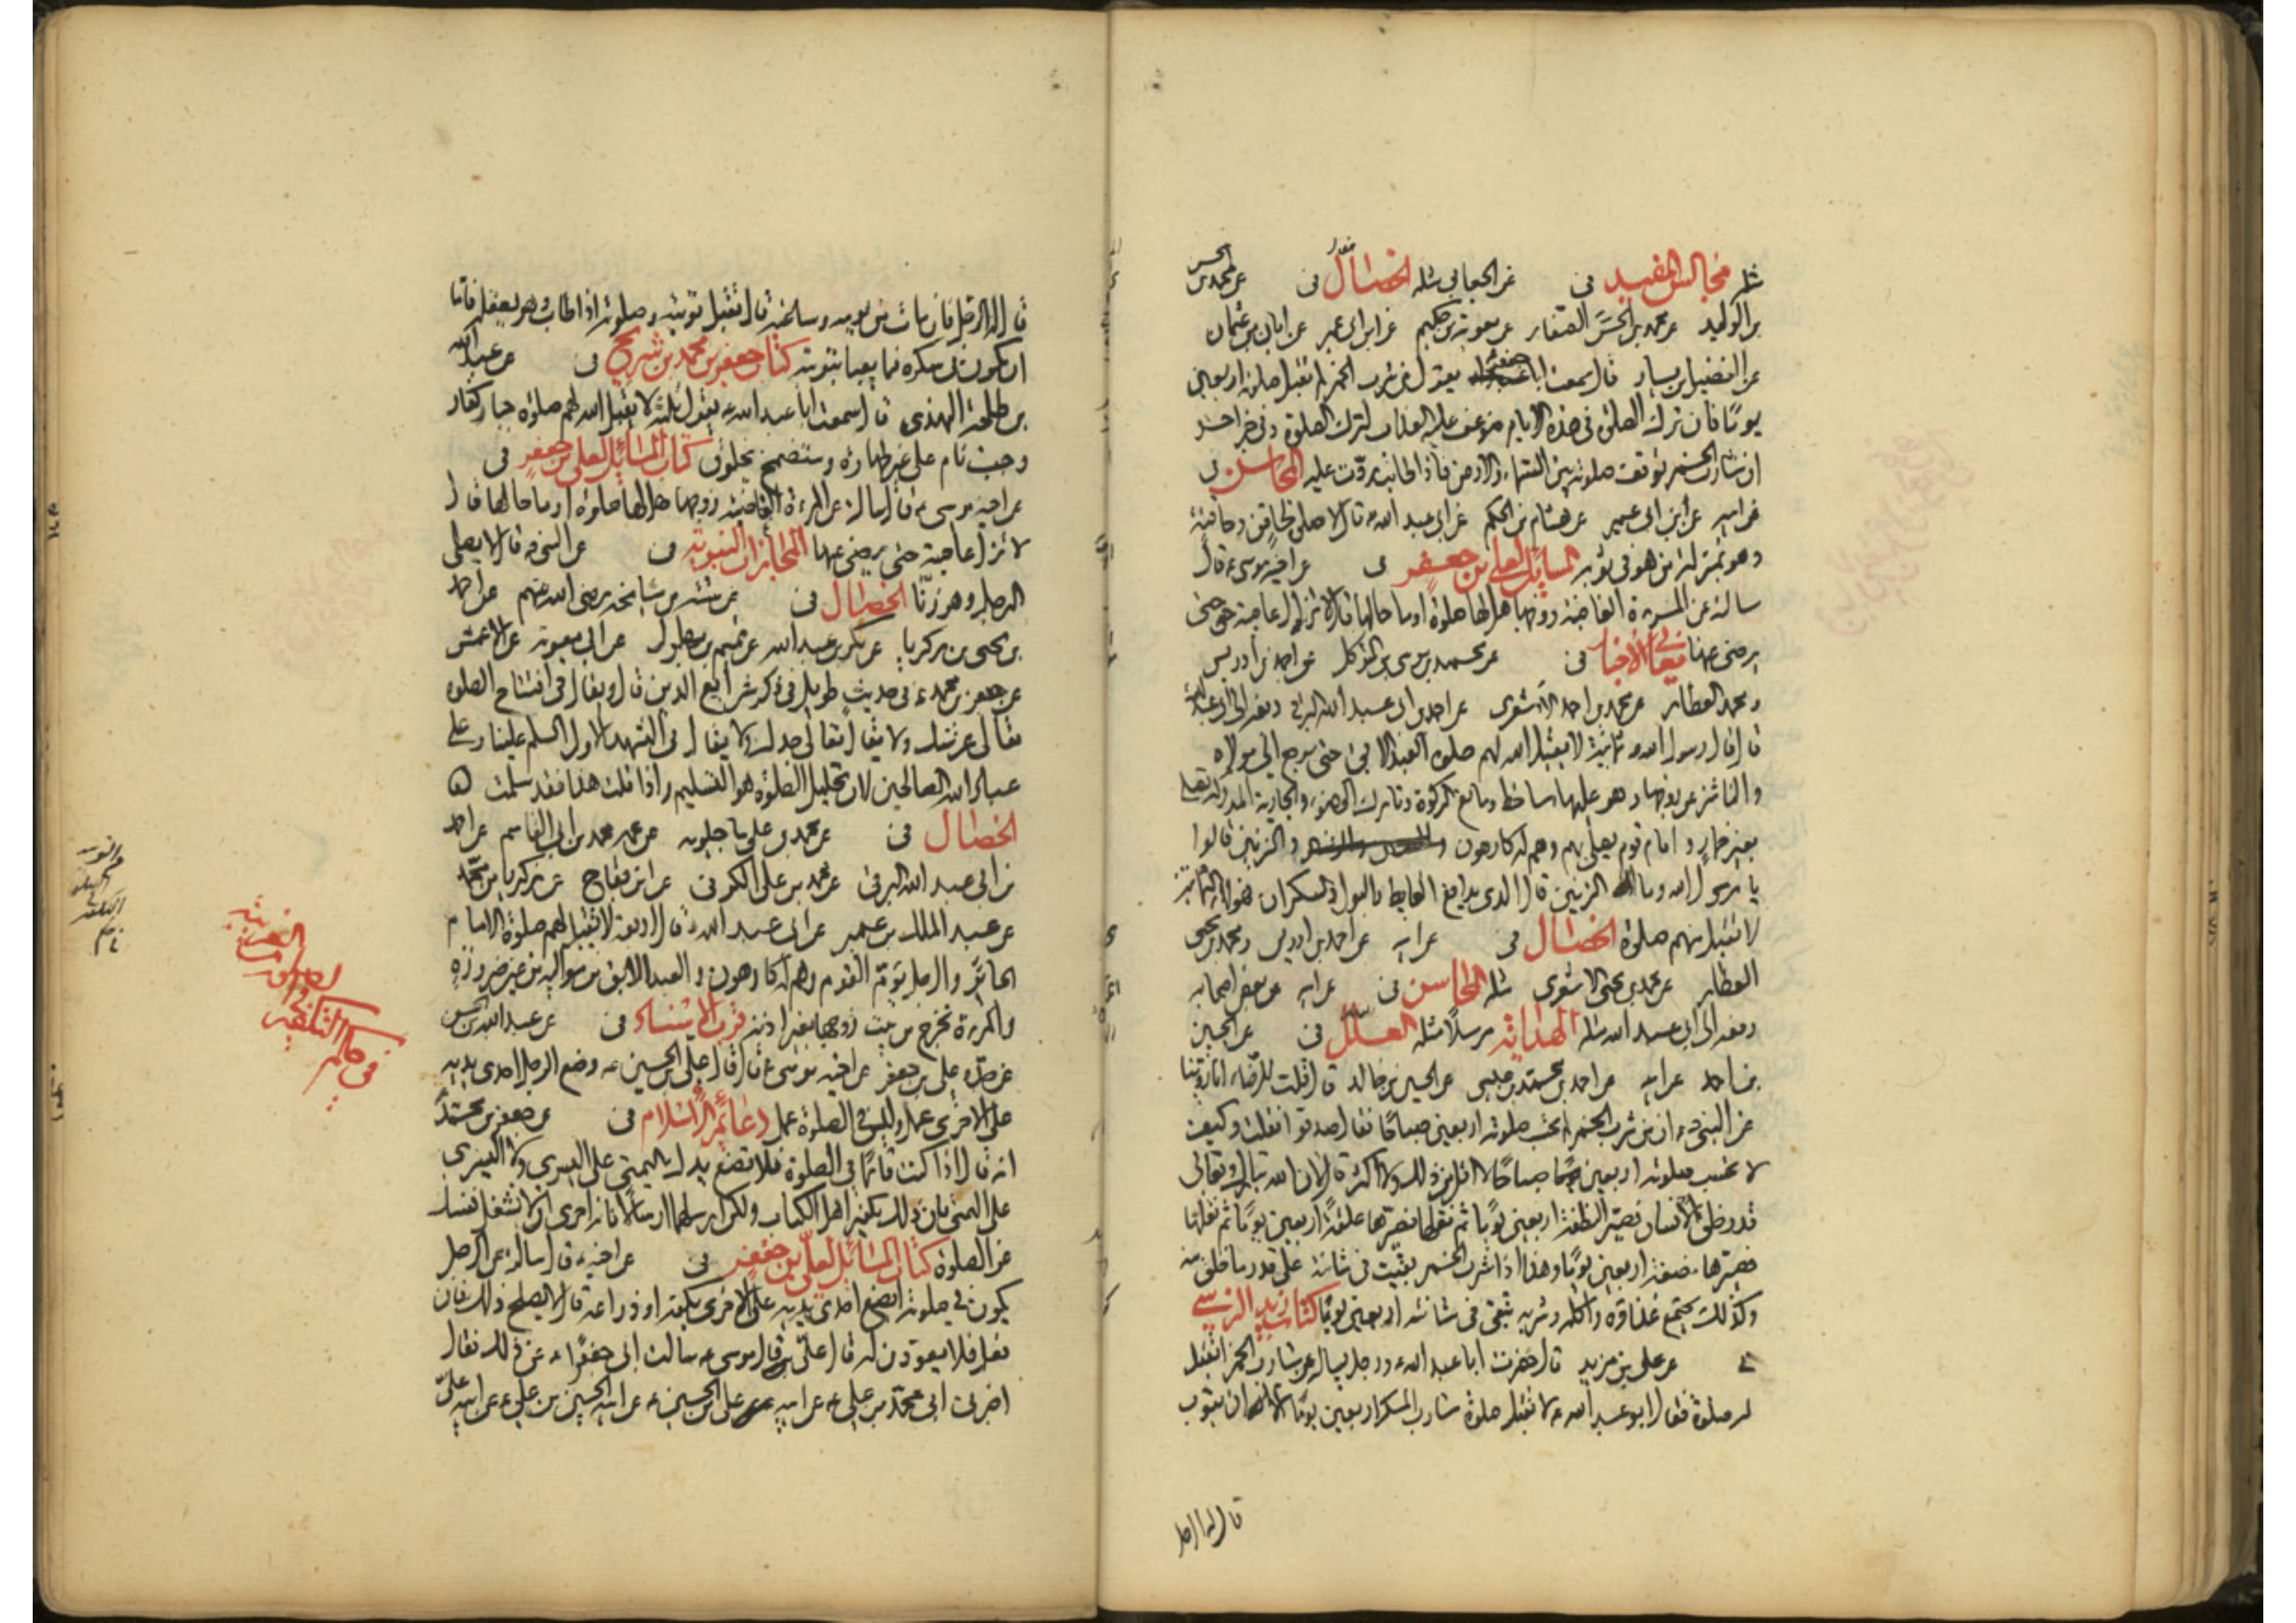 مثله مجالس المفيد في عن الجعابي مثله الخصال في عن محمد بن الحسن
بن الوليد عن محمد بن الحسن الصفار عن معوية بن حكيم عن ابن ابي عمير عن ابان بن عثمان
عن الفضيل بن يسار قال سمعت ابا جعفر يقول من شرب الخمر لم تقبل صلوته اربعين
يوما فان ترك الصلوة في هذه الايام ضوعف عليه العذاب لترك الصلوة وفي خبر اخر
ان شارب الخمر توقف صلوته بين السماء والارض فاذا تاب ردت عليه المحاسن في
عن ابيه عن ابن ابي عمير عن هشام بن الحكم عن ابي عبد الله ع قال لا صلوة لحاقن وحاقنة
وهو بمنزلة من هو في ثوبه المسائل لعلي بن جعفر في عن اخيه موسى ع قال
سالته عن المرءة الغاضبة زوجها هل لها صلوة او ما حالها قال لا تزال عاصية حتى
يرضى عنها معاني الاخبار في عن محمد بن موسى بن المتوكل عن احمد بن ادريس
ومحمد العطار عن محمد بن احمد الاشعري عن احمد بن ابي عبد الله البرقي رفعه الى ابي عبد الله
قال قال رسول الله ص ثمانية لا يقبل الله لهم صلوة العبد الابق حتى يرجع الى مولاه
والناشز عن زوجها وهو عليها ساخط ومانع الزكوة وتارك الوضوء والجارية المدركة تصلي
بغير خمار وامام قوم يصلي بهم وهم له كارهون والزنين قالوا
يا رسول الله وما الزنين قال الذي يدافع الغايط والبول والسكران فهؤلاء الثمانية
لا تقبل منهم صلوة الخصال في عن ابيه عن احمد بن ادريس ومحمد بن يحيى
العطار عن محمد بن يحيى الاشعري مثله المحاسن في عن ابيه عن بعض اصحابه
رفعه الى ابي عبد الله مثله الهداية مرسلا مثله العلل في عن الحسين
بن احمد عن ابيه عن احمد بن محمد بن عيسى عن الحسين بن خالد قال قلت للرضا ع انا روينا
عن النبي ص ان من شرب الخمر لم تحسب صلوته اربعين صباحا فقال صدقوا فقلت وكيف
لا تحسب صلوته اربعين صباحا لا اقل من ذلك ولا اكثر قال ان الله تبارك وتعالى
قدر خلق الانسان فصير النطفة اربعين يوما ثم نقلها فصيرها علقة اربعين يوما ثم نقلها
فصيرها مضغة اربعين يوما وهذا اذا شرب الخمر بقيت في مثانته على قدر ما خلق منه
وكذلك يجتمع غذاؤه واكله وشربه تبقى في مثانته اربعين يوما كتاب زيد النرسي
في عن علي بن مزيد قال حضرت ابا عبد الله ع ورجل يساله عن شارب الخمر اتقبل
له صلوة فقال ابو عبد الله ع لا تقبل صلوة شارب المسكر اربعين يوما الا ان يتوب
قال له الرجل
قال له الرجل فان مات من يومه وساعته قال تقبل توبته وصلوته اذا تاب وهو يعقله فاما
ان يكون في سكره فما يعبأ بتوبته كتاب جعفر بن محمد بن شريح في عن عبد الله
بن طلحة النهدي قال سمعت ابا عبد الله ع يقول ثلثة لا يقبل الله لهم صلوة جبار كفار
وجنب نام على غير طهارة ومتضمخ بخلوق كتاب المسائل لعلي بن جعفر في
عن اخيه موسى ع قال سالته عن المرءة الغاضبة زوجها هل لها صلوة او ما حالها قال
لا تزال عاصية حتى يرضى عنها المجازات النبوية في عن النبي ص قال لا يصلي
الرجل وهو زناء الخصال في عن ستة من مشايخه رضي الله عنهم عن احمد
بن يحيى بن زكريا عن بكر بن عبد الله عن تميم بن بهلول عن ابي معوية عن الاعمش
عن جعفر بن محمد ع في حديث طويل في ذكر شرايع الدين قال ويقال في افتتاح الصلوة
تعالى عرشك ولا يقال تعالى جدك ولا يقال في التشهد الاول السلم علينا وعلى
عباد الله الصالحين لان تحليل الصلوة هو التسليم واذا قلت هذا فقد سلمت
الخصال في عن محمد بن علي ماجيلويه عن عمه محمد بن ابي القاسم عن احمد
بن ابي عبد الله البرقي عن محمد بن علي الكوفي عن ابن بقاح عن زكريا بن محمد
عن عبد الملك بن عمير عن ابي عبد الله ع قال اربعة لا تقبل لهم صلوة الامام
الجائر والرجل يؤم القوم وهم له كارهون والعبد الابق من مواليه من غير ضرورة
والمرءة تخرج من بيت زوجها بغير اذنه قرب الاسناد في عن عبد الله بن الحسن
عن جده علي بن جعفر عن اخيه موسى ع قال قال علي بن الحسين ع وضع الرجل احدى يديه
على الاخرى عمل وليس في الصلوة عمل دعائم الاسلام في عن جعفر بن محمد
انه قال اذا كنت قائما في الصلوة فلا تضع يدك اليمنى على اليسرى ولا اليسرى
على اليمنى فان ذلك تكفير اهل الكتاب ولكن ارسلهما ارسالا فانه احرى ان لا تشغل نفسك
عن الصلوة كتاب المسائل لعلي بن جعفر في عن اخيه ع قال سالته عن الرجل
يكون في صلوته ايضع احدى يديه على الاخرى بكفه او ذراعه قال لا يصلح ذلك فان
فعل فلا يعودن له قال علي قال موسى ع سالت ابي جعفرا ع عن ذلك فقال
اخبرني ابي محمد بن علي ع عن ابيه علي بن الحسين ع عن ابيه الحسين بن علي ع عن ابيه علي